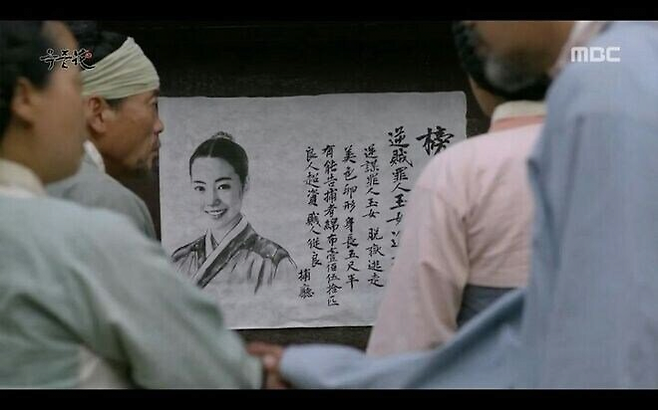 옥중花
MBC
榜
逆賊罪人玉女
逆謀罪人玉女 脫獄逃走
美色卵形身長五尺半
有能告捕者綿布壹佰伍拾匹
良人超資 賤人從良
捕廳